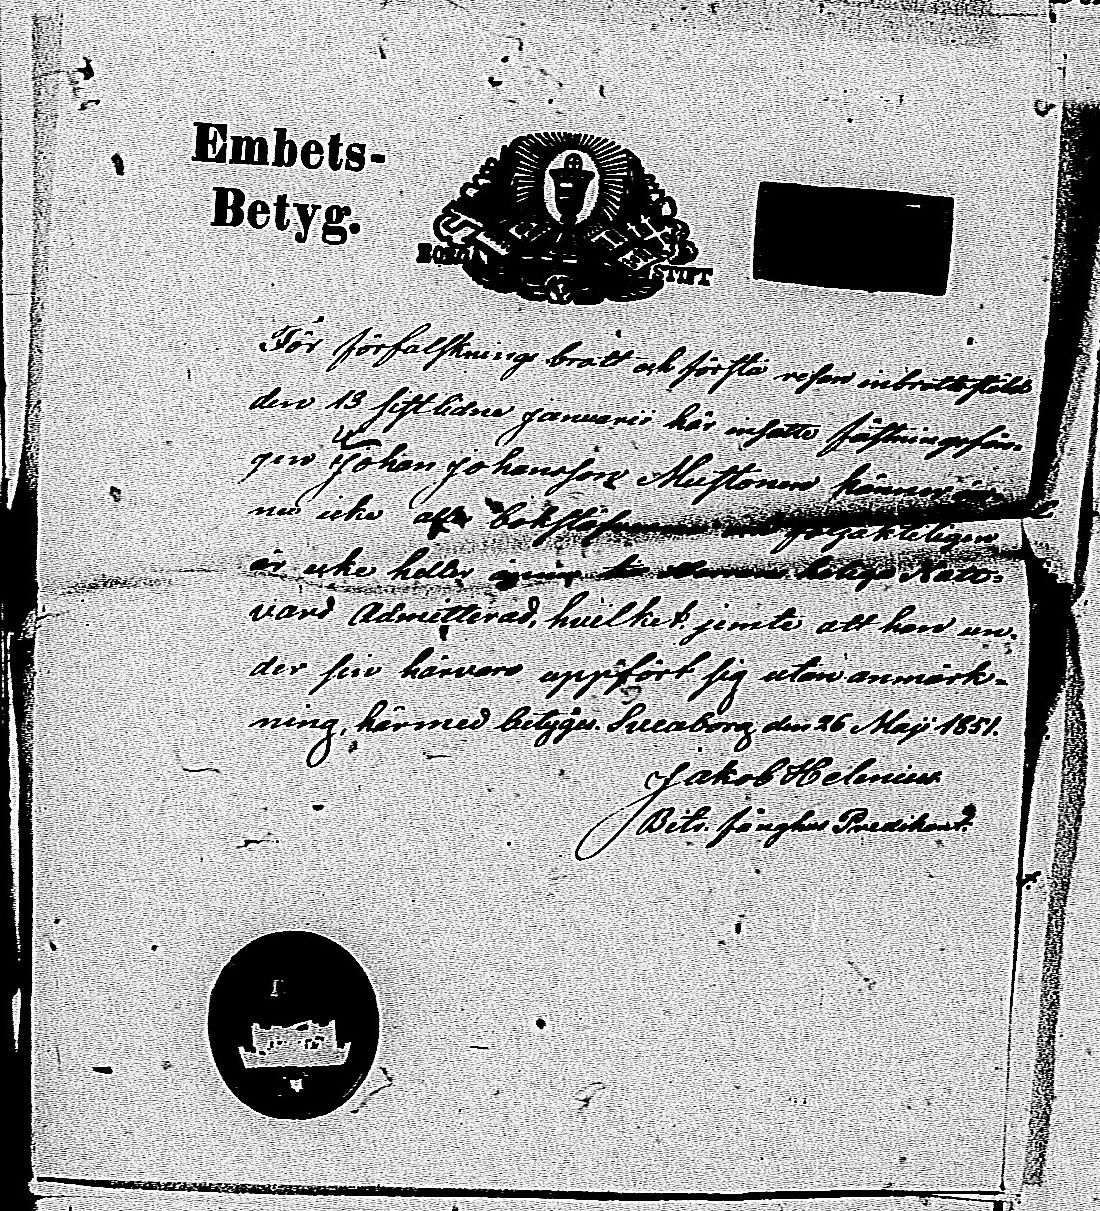 Embets-
Betyg.
BORGÅ STIFT
För förfalsknings brott och första resan inbrottsstöld
den 13 sistlidne Januarii här insatte fästningsfån-
gen Johan Johansson Mustonen känner än-
nu icke alla bokstäfverna och följakteligen
är icke heller ännu till Herrans heliga Natt-
vard Admitterad, hvilket, jemte att han un-
der sin härvaro uppfört sig utan anmärk-
ning, härmed betygas. Sveaborg den 26 Maji 1851.
Jakob Helenius
Bitr. fånghus Predikant.